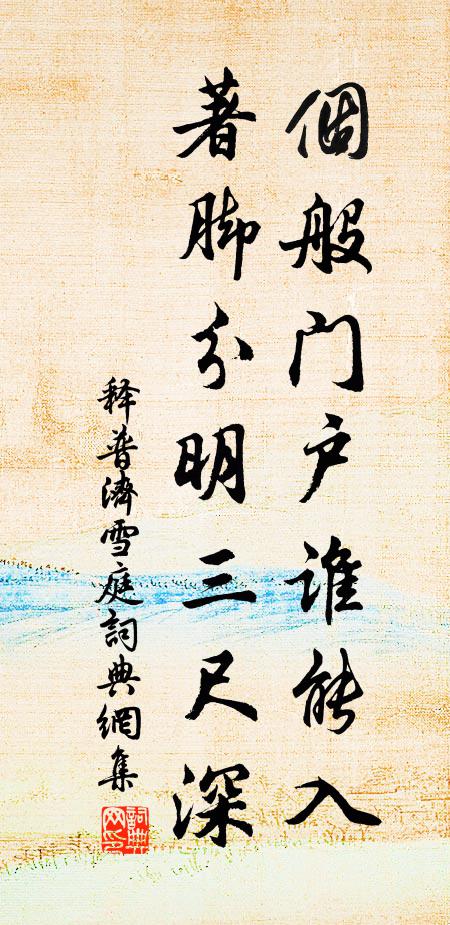 個般门户谁能入
著脚分明三尺深
释普濟雪庭詞典網集
詞典网印